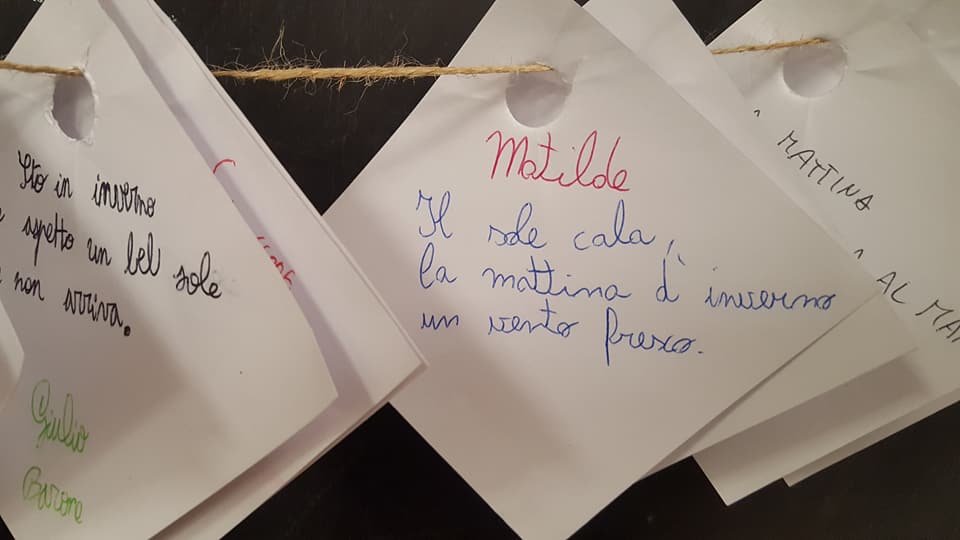 Sto in inverno
aspetto un bel sole
non arriva.
Giulio
Barone
Matilde
Il sole cala,
la mattina d'inverno
un vento fresco.
MATTINA
AL MA